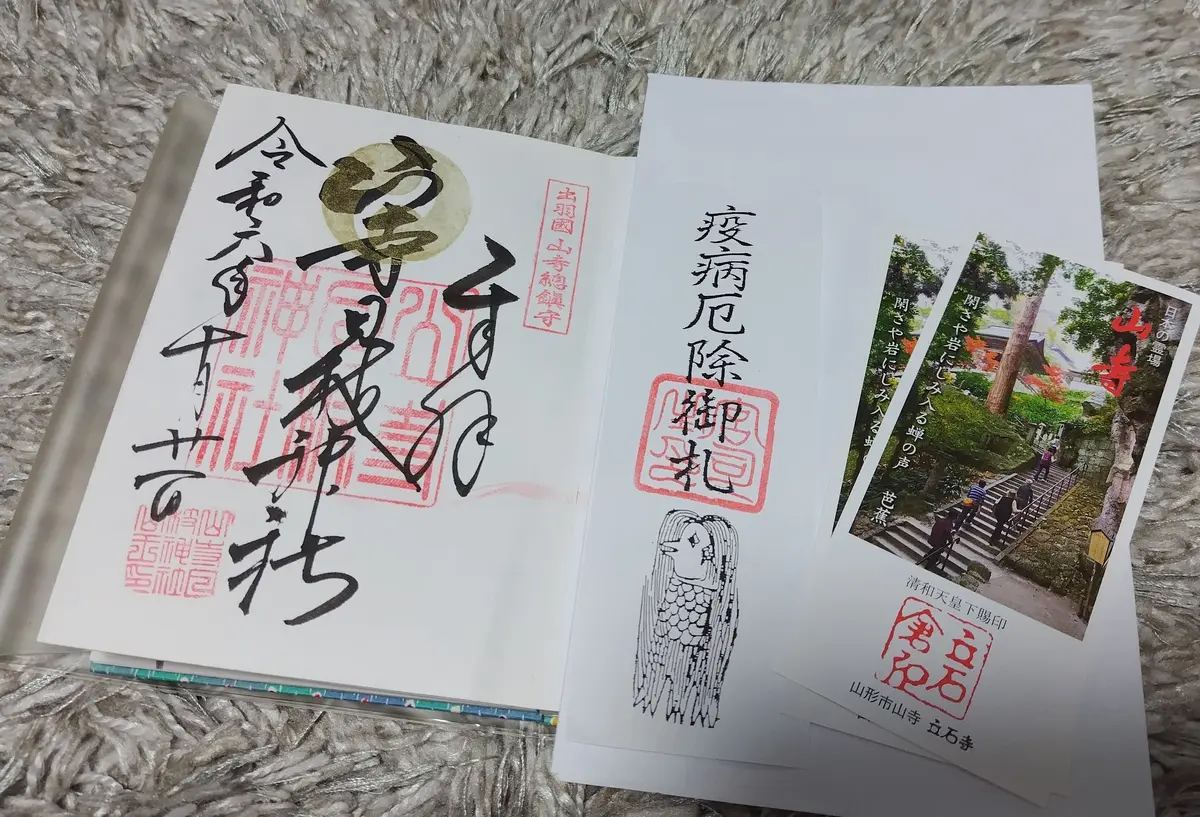 出羽國 山寺總鎮守
奉拝
山寺日枝神社
山寺日枝神社
令和六年十月廿一日
疫病厄除御札
日本の霊場
山寺
閑さや岩にしみ入る蝉の声 芭蕉
閑さや岩にしみ入る
清和天皇下賜印
立石倉印
山形市山寺 立石寺